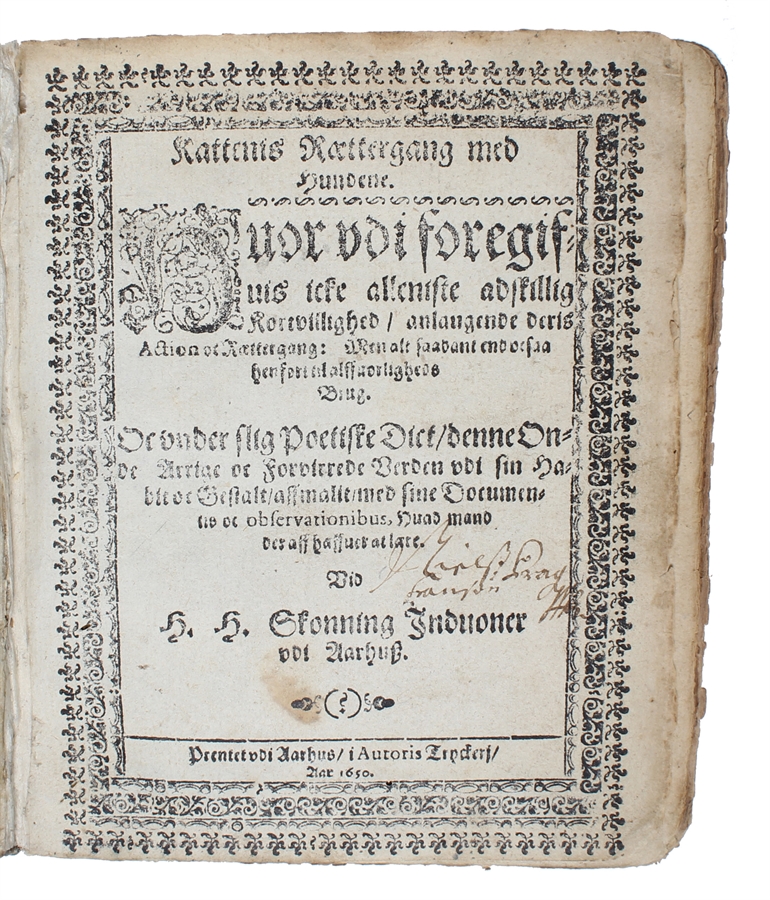 Kattenis Rættergang med
Hundene.
Huor vdi foregif-
uis icke alleniste adskillig
Kortvillighed / anlangende deris
Action oc Rættergang: Men alt saadant end ocsaa
henført til alffuorligheds
Brug.
Oc vnder slig Poetiske Dict / denne On-
de Arrige oc Forvirrede Verden vdi sin Ha-
bit oc Gestalt / affmalit / med sine Documen-
tis oc observationibus, Huad mand
der aff haffuer at lære.
Vid
H. H. Skonning Induoner
vdi Aarhuß.
(?)
Prentet vdi Aarhus / i Autoris Tryckerj /
Aar 1650.